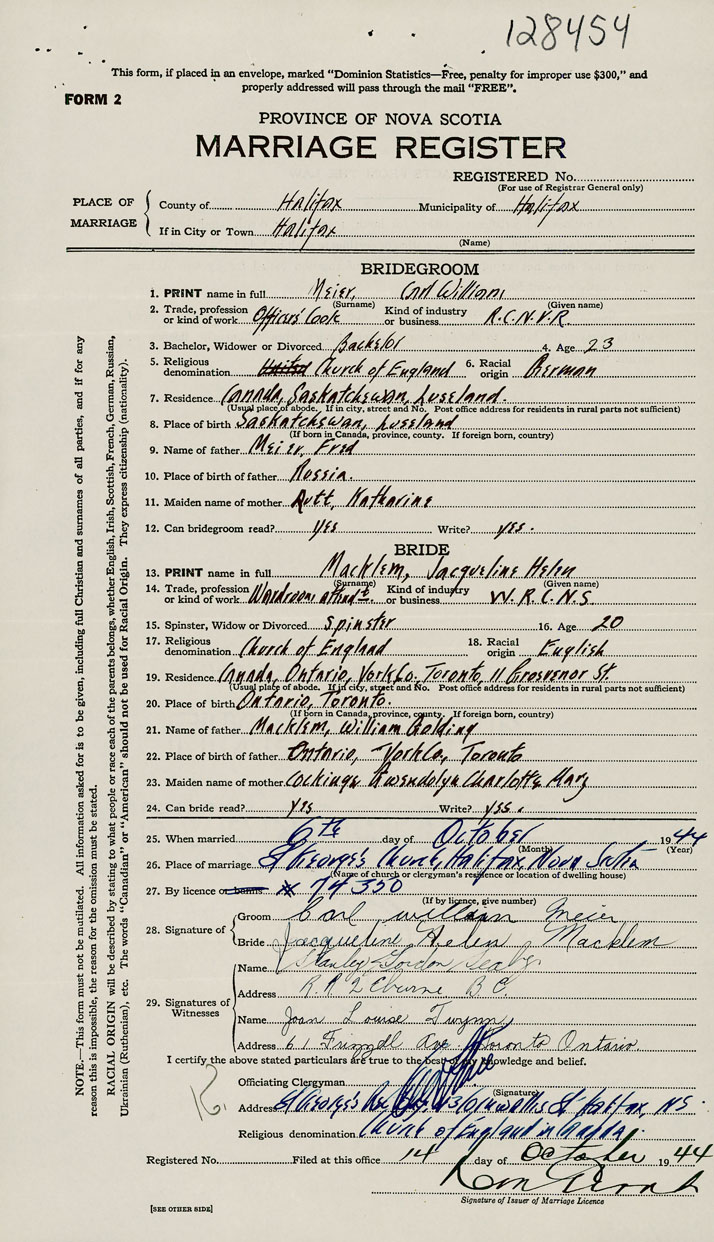 128454
This form, if placed in an envelope, marked "Dominion Statistics—Free, penalty for improper use $300," and
properly addressed will pass through the mail "FREE".
FORM 2
PROVINCE OF NOVA SCOTIA
MARRIAGE REGISTER
REGISTERED No.
(For use of Registrar General only)
PLACE OF MARRIAGE
County of Halifax Municipality of Halifax
If in City or Town Halifax
(Name)
BRIDEGROOM
1. PRINT name in full Meier, Carl William
(Surname) (Given name)
2. Trade, profession or kind of work Officers' Cook Kind of industry or business R.C.N.V.R.
3. Bachelor, Widower or Divorced Bachelor 4. Age 23
5. Religious denomination United Church of England 6. Racial origin German
7. Residence Canada, Saskatchewan, Luseland.
(Usual place of abode. If in city, street and No. Post office address for residents in rural parts not sufficient)
8. Place of birth Saskatchewan, Luseland
(If born in Canada, province, county. If foreign born, country)
9. Name of father Meier, Fred
10. Place of birth of father Russia.
11. Maiden name of mother Katharine
12. Can bridegroom read? yes Write? yes.
BRIDE
13. PRINT name in full Macklem, Jacqueline Helen
(Surname) (Given name)
14. Trade, profession or kind of work Wardroom attend't. Kind of industry or business W.R.C.N.S.
15. Spinster, Widow or Divorced Spinster 16. Age 20
17. Religious denomination Church of England 18. Racial origin English
19. Residence Canada, Ontario, York Co. Toronto, 11 Grosvenor St.
(Usual place of abode. If in city, street and No. Post office address for residents in rural parts not sufficient)
20. Place of birth Ontario, Toronto.
(If born in Canada, province, county. If foreign born, country)
21. Name of father Macklem, William Golding
22. Place of birth of father Ontario, York Co, Toronto
23. Maiden name of mother Cockings Gwendolyn Charlotte Mary
24. Can bride read? yes Write? yes.
25. When married 6th day of October 1944
(Month) (Year)
26. Place of marriage St George's Church, Halifax, Nova Scotia
(Name of church or clergyman's residence or location of dwelling house)
27. By licence or banns 74350
(If by licence, give number)
28. Signature of
Groom Carl William Meier
Bride Jacqueline Helen Macklem
29. Signatures of Witnesses
Name Stanley Gordon
Address R.R 2 Eburne B.C.
Name Joan Louise
Address 61 Frizzell Ave. Toronto Ontario
I certify the above stated particulars are true to the best of my knowledge and belief.
Officiating Clergyman
(Signature)
Address St George's Cornwallis St Halifax, N.S.
Religious denomination Church of England in Canada.
Registered No. Filed at this office 14 day of October 1944
Signature of Issuer of Marriage Licence
[SEE OTHER SIDE]
NOTE.—This form must not be mutilated. All information asked for is to be given, including full Christian and surnames of all parties, and if for any
reason this is impossible, the reason for the omission must be stated.
RACIAL ORIGIN will be described by stating to what people or race each of the parents belongs, whether English, Irish, Scottish, French, German, Russian,
Ukrainian (Ruthenian), etc. The words "Canadian" or "American" should not be used for Racial Origin. They express citizenship (nationality).